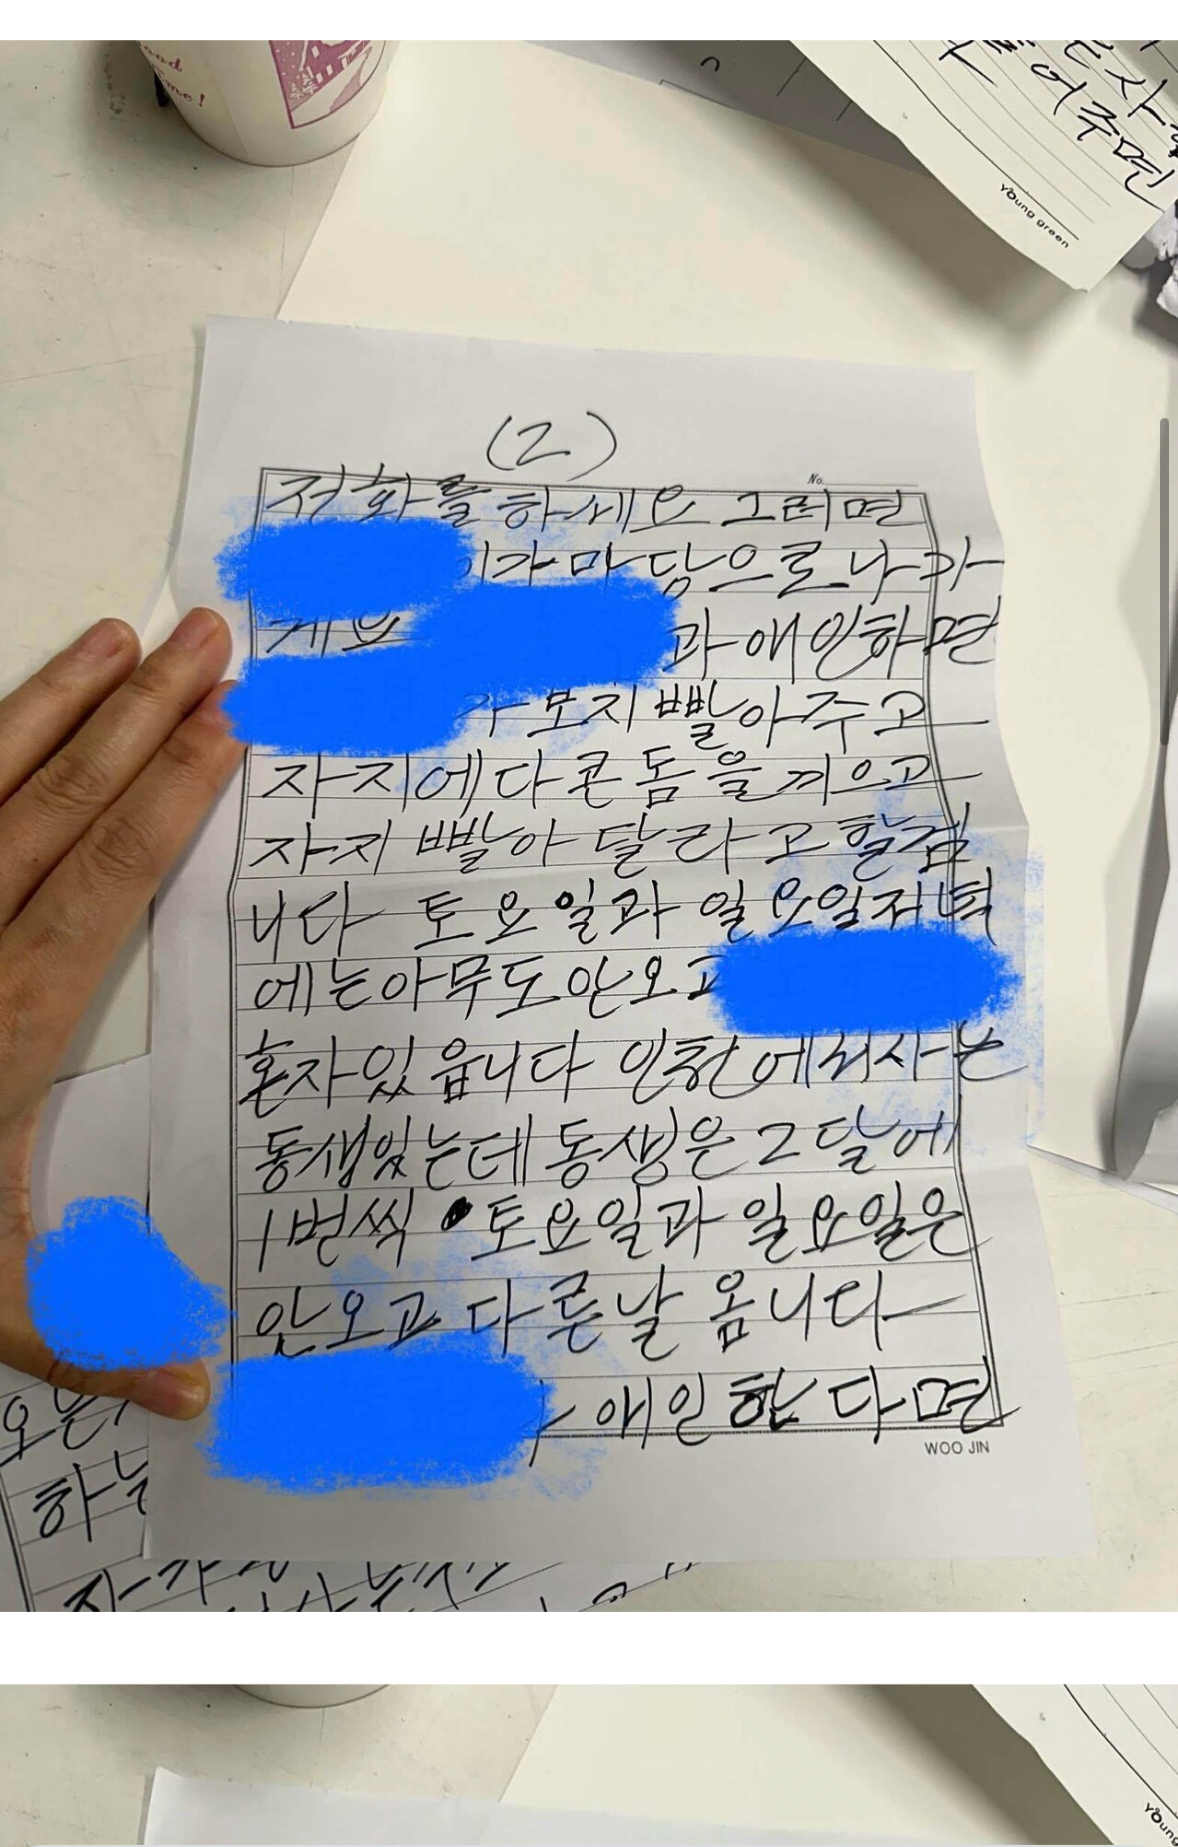 ood
me!
어주면
Young green
(2)
No.
전화를 하세요 그러면
이가 마당으로 나가
게요
과 애인하면
가 보지 빨아주고
자지에다 콘돔을 끼으고
자지 빨아 달라고 할겁
니다 토요일과 일요일저녁
에는 아무도 안오고
혼자있읍니다 인천에서 사는
동생있는데 동생은 2달에
1번씩 토요일과 일요일은
안오고 다른날 옵니다
애인한다면
WOO JIN
하는